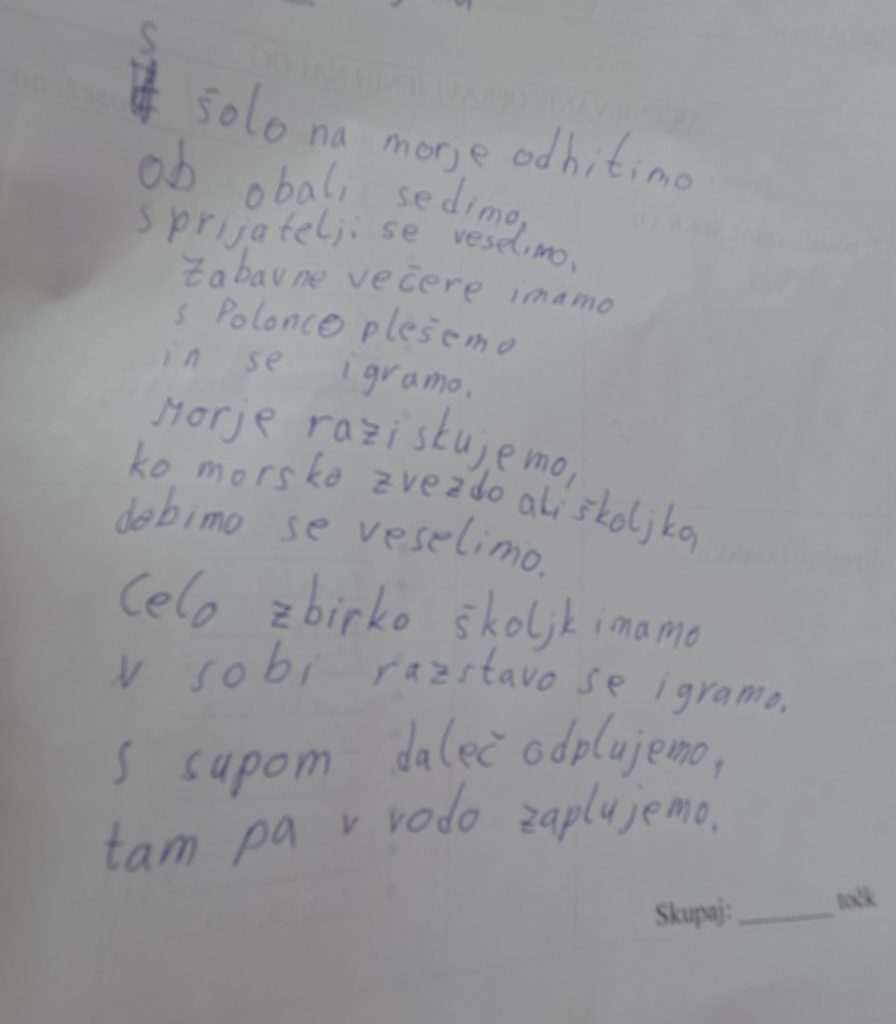 S
šolo na morje odhitimo
ob obali sedimo,
s prijatelji se veselimo,
Zabavne večere imamo
s Polonco plešemo
in se igramo.
Morje raziskujemo,
ko morsko zvezdo ali školjko
dobimo se veselimo.
Celo zbirko školjk imamo
v sobi razstavo se igramo.
S supom daleč odplujemo,
tam pa v vodo zaplujemo.
Skupaj: ______ točk